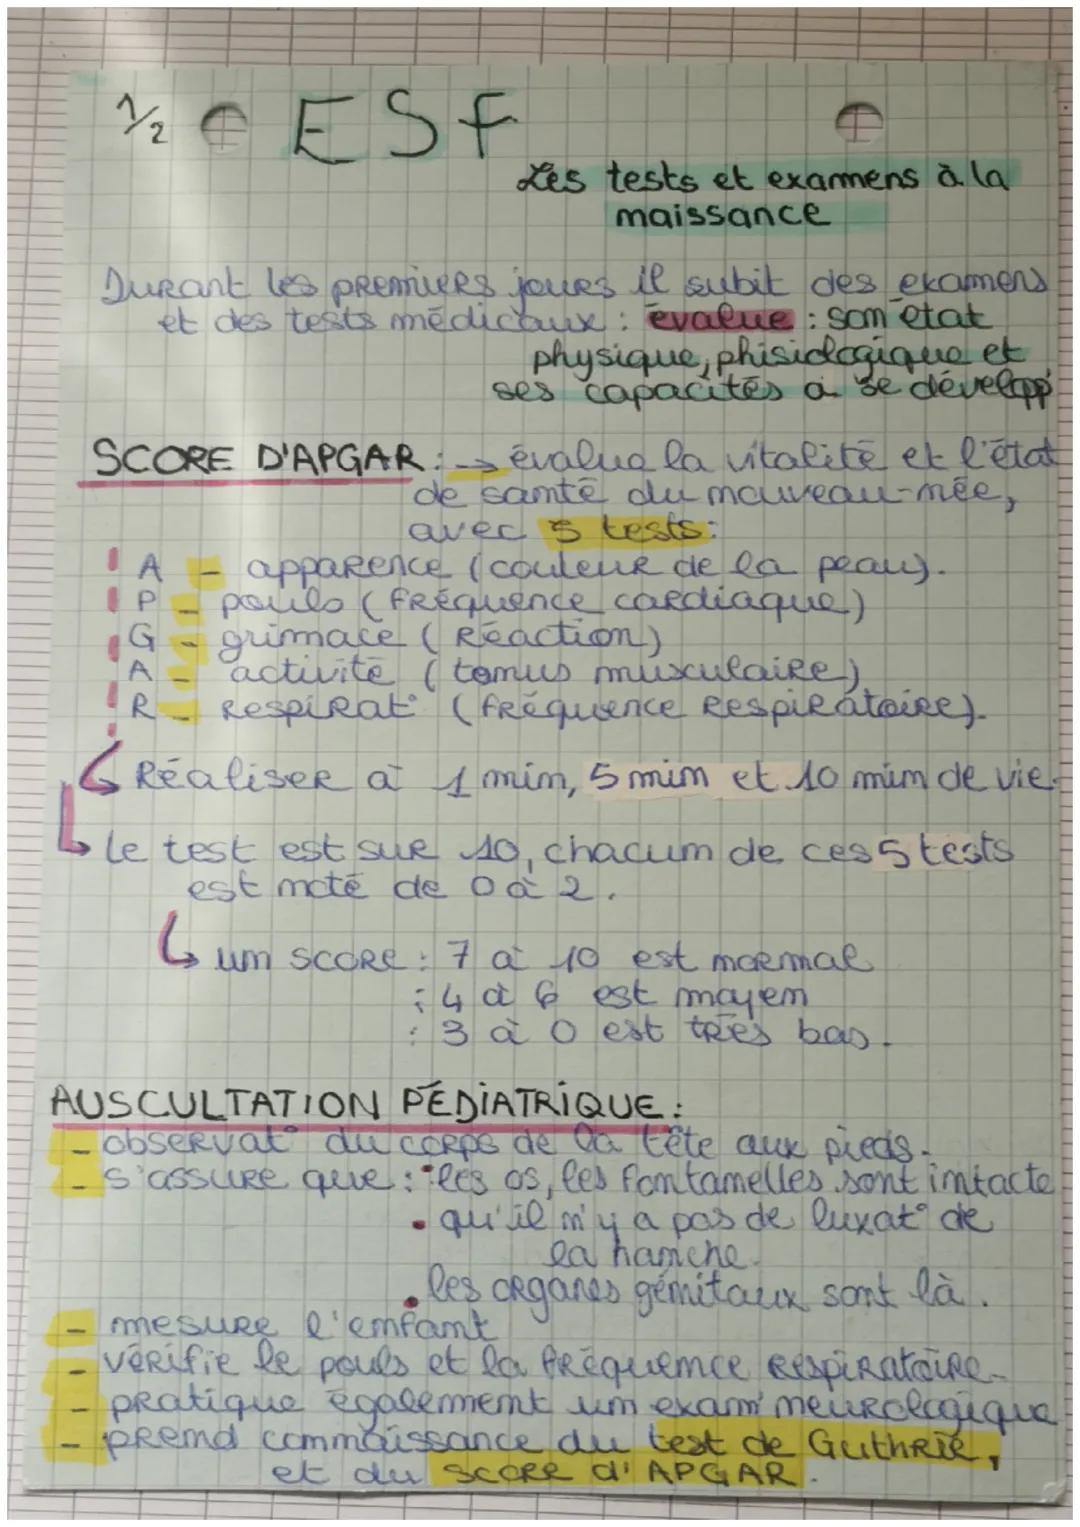 1/2 ESF
Les tests et examens à la
naissance
Durant les premiers jours il subit des examens
et des tests médicaux : évalue : son état
physique, phisiologique et
ses capacités à se développ
SCORE D'APGAR : → évalue la vitalité et l'état
de santé du nouveau-née,
avec 5 tests :
A - apparence (couleur de la peau).
P - pouls (fréquence cardiaque)
G - grimace (Réaction)
A - activité (tonus musculaire)
R - Respirat° (fréquence Respiratoire).
↳ Réaliser à 1 min, 5 min et 10 min de vie.
↳ le test est sur 10, chacun de ces 5 tests
est noté de 0 à 2.
↳ un score : 7 à 10 est normal
: 4 à 6 est moyen
: 3 à 0 est très bas.
AUSCULTATION PÉDIATRIQUE :
- observat° du corps de la tête aux pieds.
- s'assure que : • les os, les fontanelles sont intacte
• qu'il n'y a pas de luxat° de
la hanche.
• les organes génitaux sont là.
- mesure l'enfant
- vérifie le pouls et la fréquence Respiratoire.
- pratique également un exam° neurologique
- prend connaissance du test de Guthrie,
et du score d'APGAR.